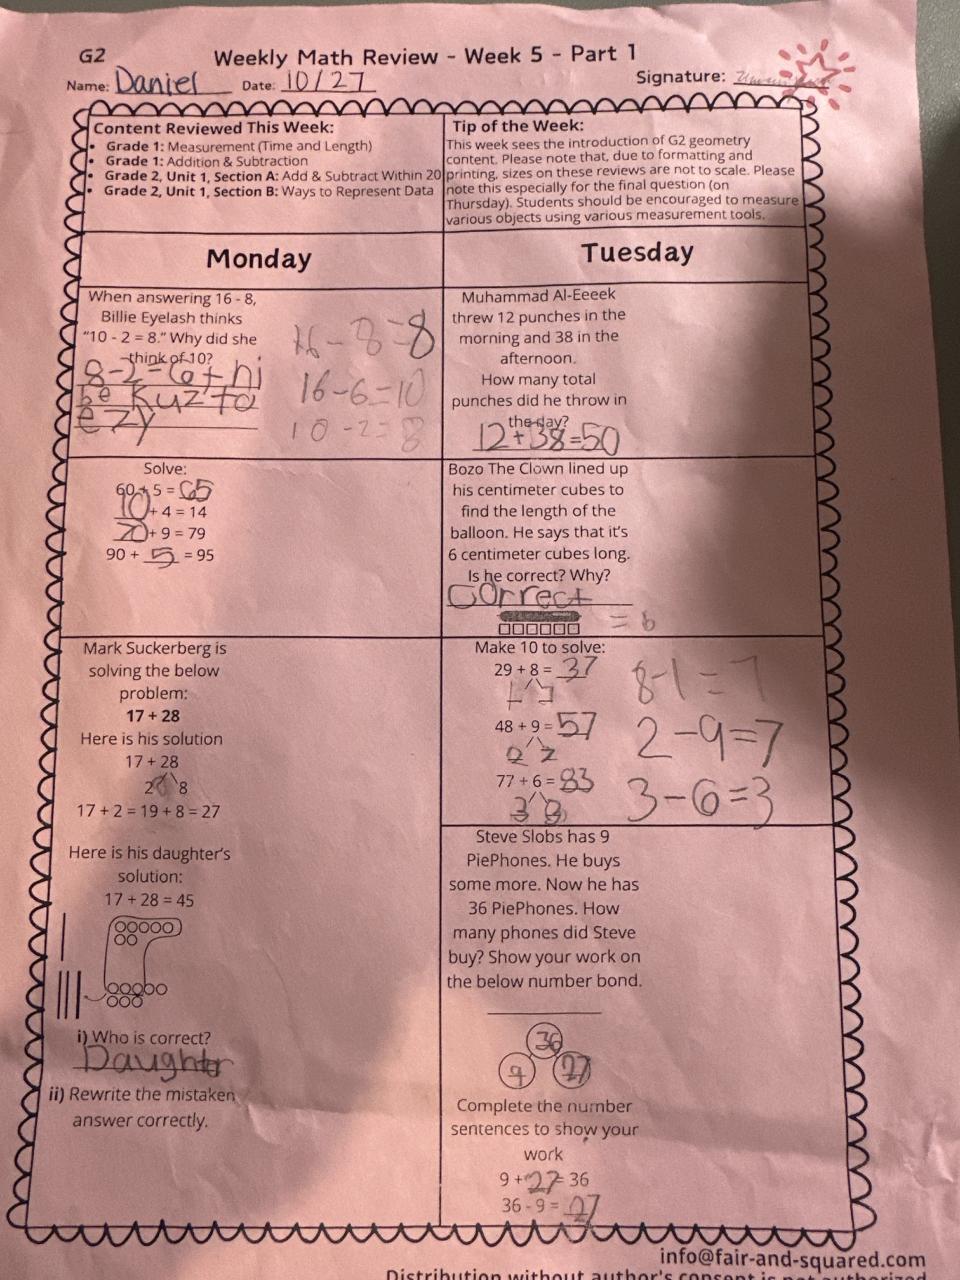 G2
Weekly Math Review - Week 5 - Part 1
Name: Daniel Date: 10/27 Signature:
Content Reviewed This Week:
• Grade 1: Measurement (Time and Length)
• Grade 1: Addition & Subtraction
• Grade 2, Unit 1, Section A: Add & Subtract Within 20
• Grade 2, Unit 1, Section B: Ways to Represent Data
Tip of the Week:
This week sees the introduction of G2 geometry
content. Please note that, due to formatting and
printing, sizes on these reviews are not to scale. Please
note this especially for the final question (on
Thursday). Students should be encouraged to measure
various objects using various measurement tools.
Monday
When answering 16 - 8,
Billie Eyelash thinks
"10 - 2 = 8." Why did she
think of 10?
8-2=6+hi
be kuz to
ezy
16-8=8
16-6=10
10-2=8
Solve:
60 + 5 = 65
10 + 4 = 14
70 + 9 = 79
90 + 5 = 95
Mark Suckerberg is
solving the below
problem:
17 + 28
Here is his solution
17 + 28
2 8
17 + 2 = 19 + 8 = 27
Here is his daughter's
solution:
17 + 28 = 45
i) Who is correct?
Daughtr
ii) Rewrite the mistaken
answer correctly.
Tuesday
Muhammad Al-Eeeek
threw 12 punches in the
morning and 38 in the
afternoon.
How many total
punches did he throw in
the day?
12+38=50
Bozo The Clown lined up
his centimeter cubes to
find the length of the
balloon. He says that it's
6 centimeter cubes long.
Is he correct? Why?
Correct
= 6
Make 10 to solve:
29 + 8 = 37
8-1=7
1 7
48 + 9 = 57
2-9=7
2 7
77 + 6 = 83
3-6=3
3 3
Steve Slobs has 9
PiePhones. He buys
some more. Now he has
36 PiePhones. How
many phones did Steve
buy? Show your work on
the below number bond.
36
9 27
Complete the number
sentences to show your
work
9 + 27 = 36
36 - 9 = 27
info@fair-and-squared.com
Distribution without author's consent is not authorized